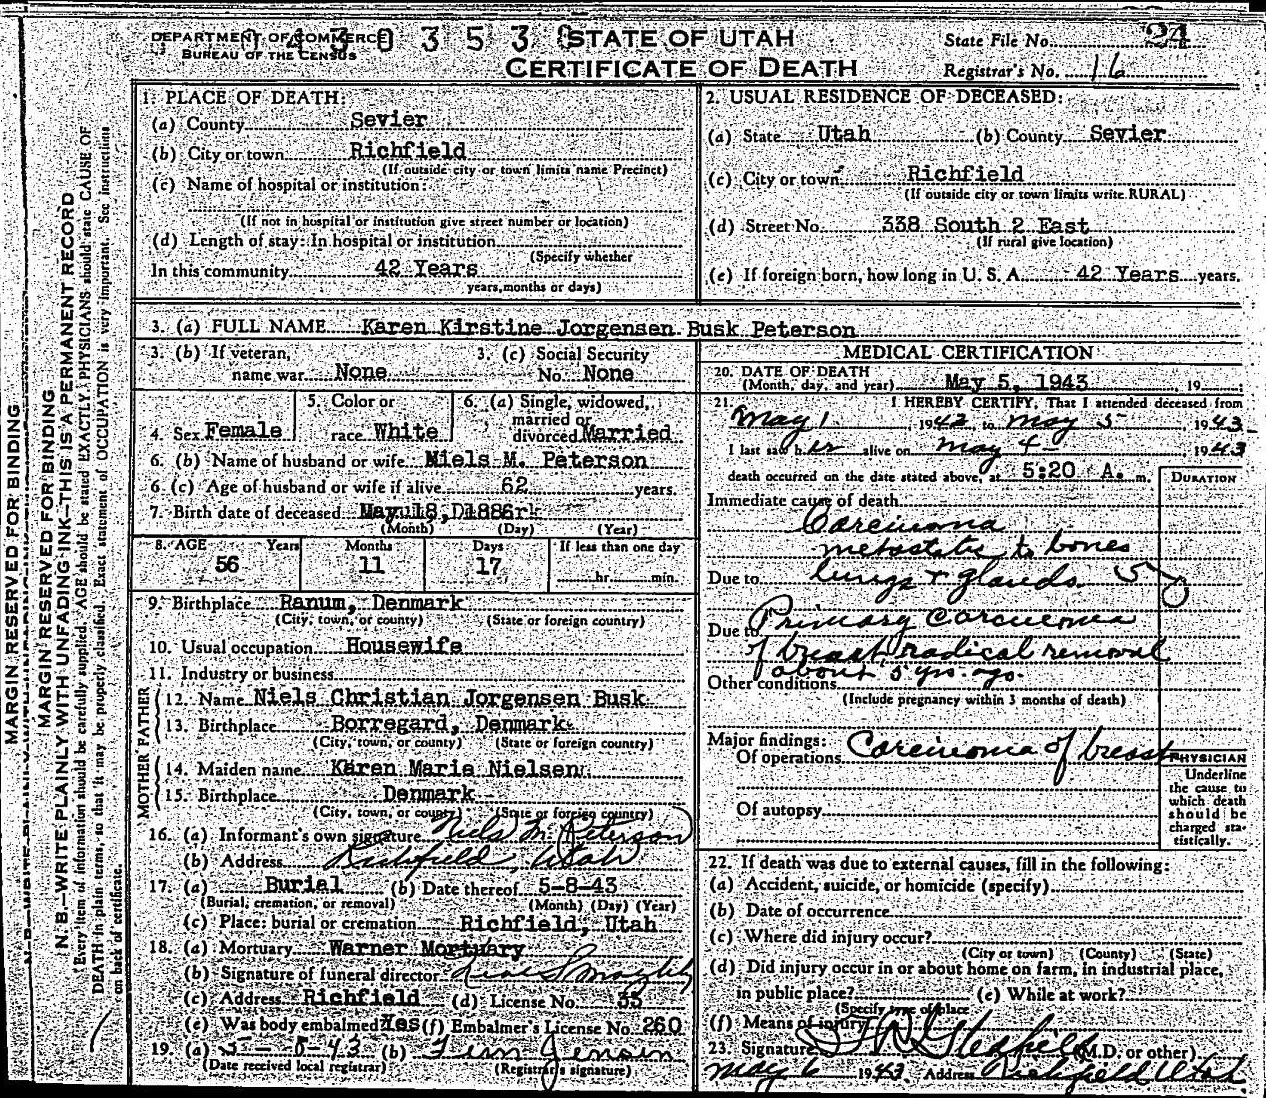 DEPARTMENT OF COMMERCE
BUREAU OF THE CENSUS
0430353
STATE OF UTAH
CERTIFICATE OF DEATH
State File No. 24
Registrar's No. 16
MARGIN RESERVED FOR BINDING
MARGIN RESERVED FOR BINDING
N. B.—WRITE PLAINLY WITH UNFADING INK—THIS IS A PERMANENT RECORD
Every item of information should be carefully supplied. AGE should be stated EXACTLY. PHYSICIANS should state CAUSE OF
DEATH in plain terms, so that it may be properly classified. Exact statement of OCCUPATION is very important. See instructions
on back of certificate.
1. PLACE OF DEATH:
(a) County Sevier
(b) City or town Richfield
(If outside city or town limits name Precinct)
(c) Name of hospital or institution:
(If not in hospital or institution give street number or location)
(d) Length of stay: In hospital or institution
(Specify whether
In this community 42 Years
years, months or days)
2. USUAL RESIDENCE OF DECEASED:
(a) State Utah (b) County Sevier
(c) City or town Richfield
(If outside city or town limits write RURAL)
(d) Street No. 338 South 2 East
(If rural give location)
(e) If foreign born, how long in U. S. A. 42 Years years.
3. (a) FULL NAME Karen Kirstine Jorgensen Busk Peterson
3. (b) If veteran, name war None
3. (c) Social Security No. None
4. Sex Female
5. Color or race White
6. (a) Single, widowed, married or divorced Married
6. (b) Name of husband or wife Niels M. Peterson
6. (c) Age of husband or wife if alive 62 years.
7. Birth date of deceased May 18, 1886
(Month) (Day) (Year)
8. AGE Years Months Days If less than one day
56 11 17 hr. min.
9. Birthplace Ranum, Denmark
(City, town, or county) (State or foreign country)
10. Usual occupation Housewife
11. Industry or business
FATHER
12. Name Niels Christian Jorgensen Busk
13. Birthplace Borregard, Denmark
(City, town, or county) (State or foreign country)
MOTHER
14. Maiden name Karen Marie Nielsen
15. Birthplace Denmark
(City, town, or county) (State or foreign country)
16. (a) Informant's own signature Niels M. Peterson
(b) Address Richfield, Utah
17. (a) Burial (b) Date thereof 5-8-43
(Burial, cremation, or removal) (Month) (Day) (Year)
(c) Place: burial or cremation Richfield, Utah
18. (a) Mortuary Warner Mortuary
(b) Signature of funeral director
(c) Address Richfield (d) License No. 35
(e) Was body embalmed? Yes (f) Embalmer's License No. 260
19. (a) 5-8-43 (b) Fern Jensen
(Date received local registrar) (Registrar's signature)
MEDICAL CERTIFICATION
20. DATE OF DEATH
(Month, day, and year) May 5, 1943 19
21. I HEREBY CERTIFY, That I attended deceased from
May 1, 1942, to May 5, 1943
I last saw her alive on May 4 1943
death occurred on the date stated above, at 5:20 A. m.
DURATION
Immediate cause of death
Carcinoma
metastatic to bones
Due to lungs + glands. 5 y
Due to Primary Carcinoma
of breast, radical removal
about 5 yrs. ago.
Other conditions
(Include pregnancy within 3 months of death)
Major findings:
Of operations Carcinoma of breast
Of autopsy
PHYSICIAN
Underline
the cause to
which death
should be
charged sta-
tistically.
22. If death was due to external causes, fill in the following:
(a) Accident, suicide, or homicide (specify)
(b) Date of occurrence
(c) Where did injury occur?
(City or town) (County) (State)
(d) Did injury occur in or about home on farm, in industrial place,
in public place? (e) While at work?
(Specify type of place
(f) Means of injury
23. Signature (M.D. or other)
May 6 1943 Address Richfield Utah